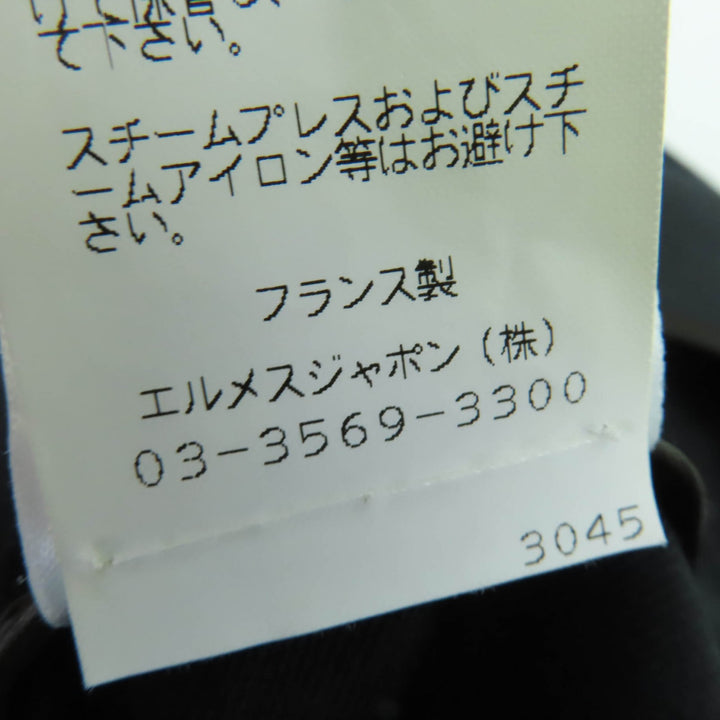 て下さい。
スチームプレスおよびスチ
ームアイロン等はお避け下
さい。
フランス製
エルメスジャポン(株)
03-3569-3300
3045